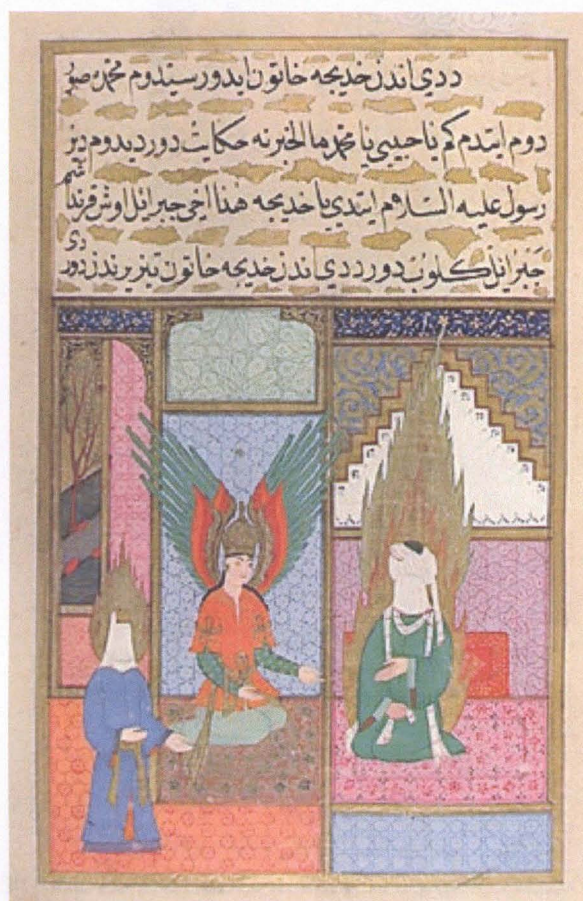 ددي اندن خديجه خاتون ايدور سيتدوم محمده صور
دوم ايتدم كم يا حبيبي يا محمد ما الخبر نه حكايت دور ديدوم
رسول عليه السلام ايتدي يا خديجه هذا اخي جبرائل اوش قرنداشم
جبرائل كلوب دور ددي اندن خديجه خاتون